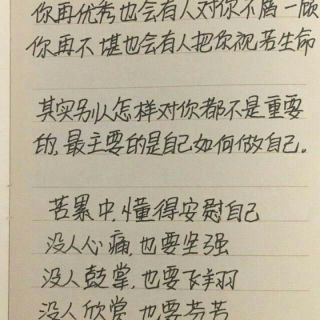 你再优秀也会有人对你不屑一顾
你再不堪也会有人把你视若生命
其实别人怎样对你都不是重要
的,最主要的是自己如何做自己。
苦累中,懂得安慰自己
没人心痛,也要坚强
没人鼓掌,也要飞翔
没人欣赏,也要芬芳